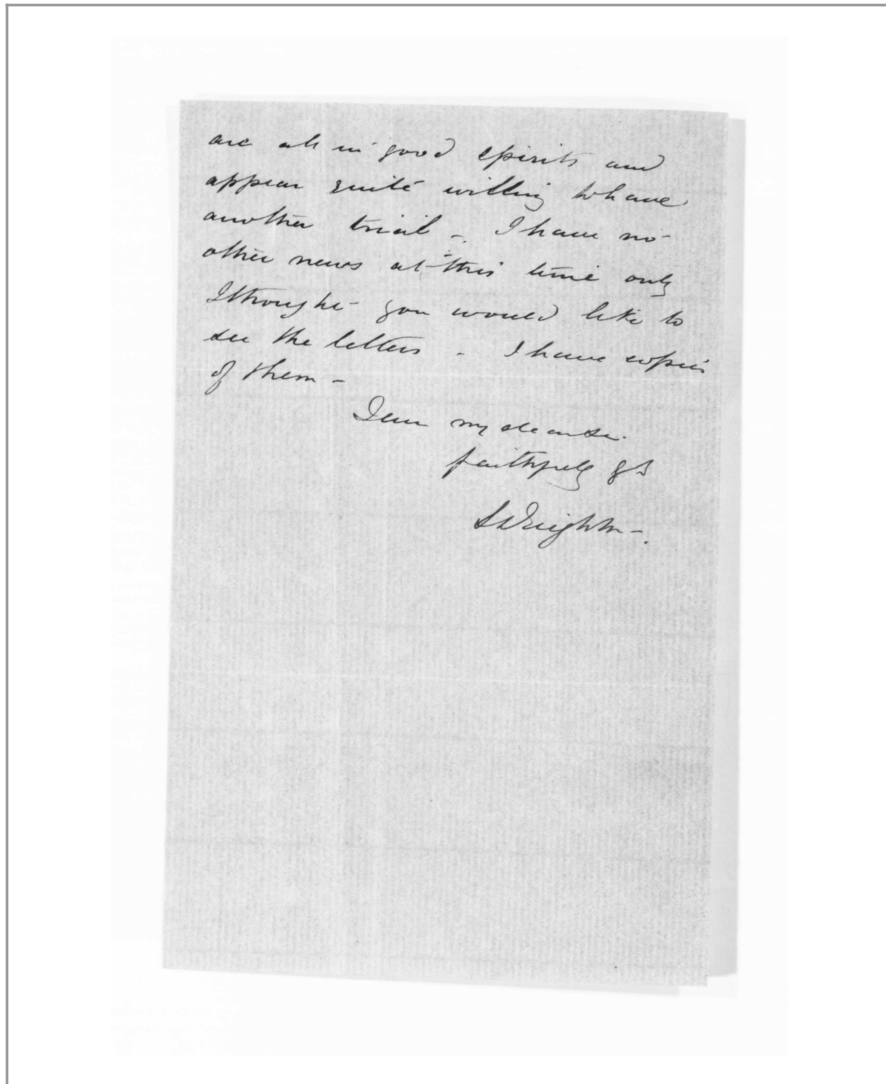 are all in good spirits and
appear quite willing to have
another trial - I have no
other news at this time only
I thought you would like to
see the letters - I have copies
of them -
I am my dear sir
faithfully yrs